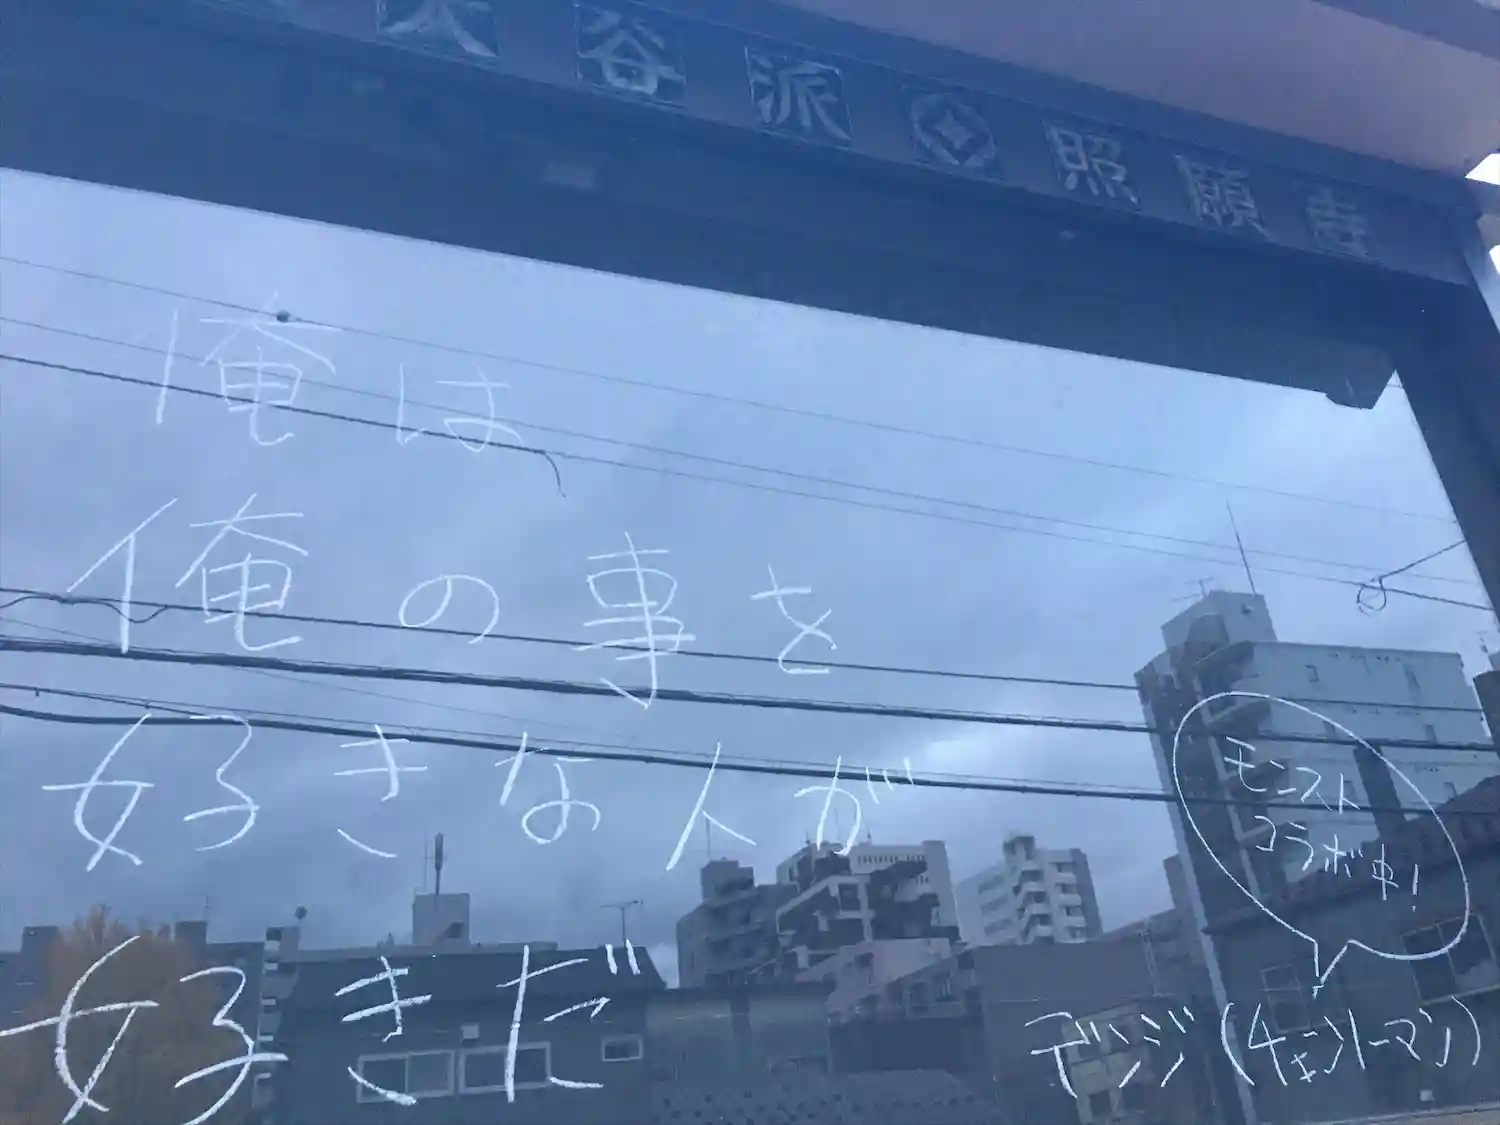 大谷派 照願寺
俺は
俺の事を
好きな人が
好きだ
モンスト
コラボ中!
デンジ(チェンソーマン)